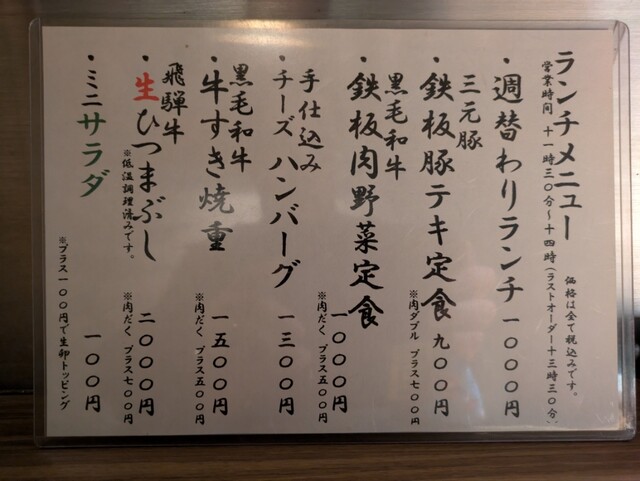 ランチメニュー
価格は全て税込みです。
営業時間 十一時三〇分～十四時(ラストオーダー十三時三〇分)
・週替わりランチ 一〇〇〇円
三元豚
・鉄板豚テキ定食 九〇〇円
※肉ダブル プラス七〇〇円
黒毛和牛
・鉄板肉野菜定食 一〇〇〇円
※肉だく プラス五〇〇円
手仕込み
・チーズハンバーグ 一三〇〇円
黒毛和牛
・牛すき焼重 一五〇〇円
※肉だく プラス五〇〇円
飛騨牛
・生ひつまぶし 二〇〇〇円
※低温調理済みです。
※肉だく プラス七〇〇円
・ミニサラダ 一〇〇円
※プラス一〇〇円で生卵トッピング